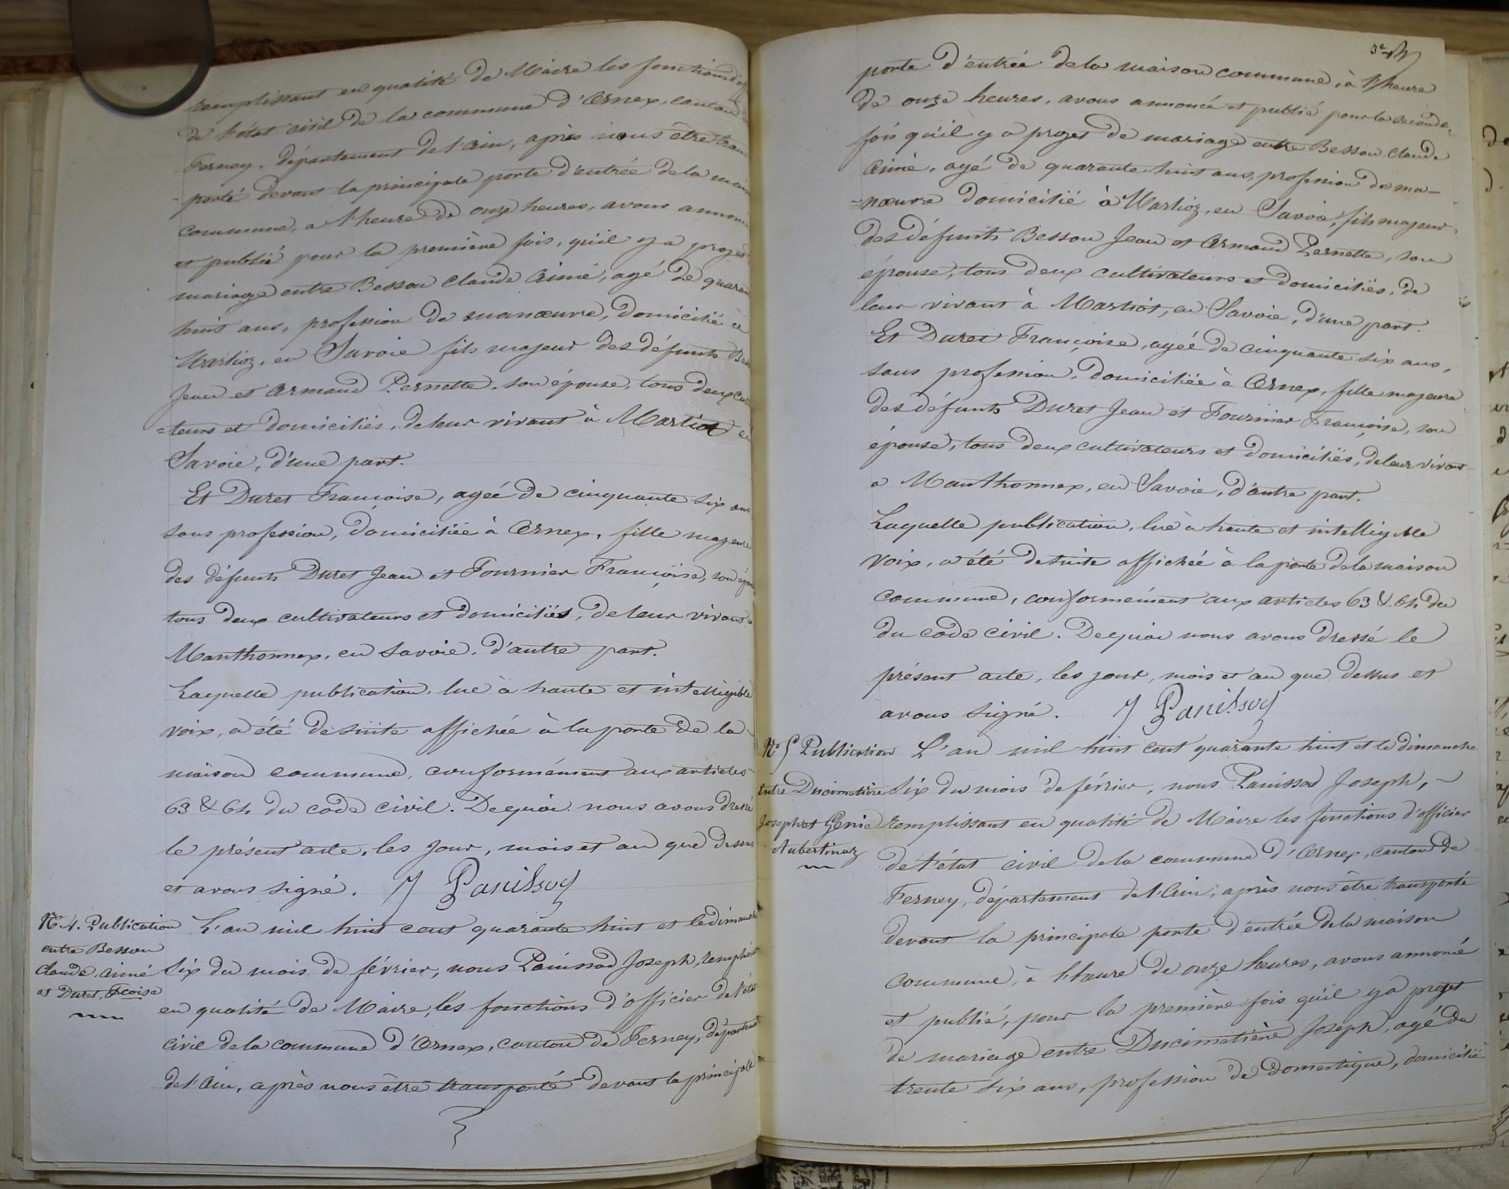 remplissant en qualité de Maire les fonctions
de l'état civil de la commune d'Ornex, canton
Ferney, département de l'Ain, après nous être trans
porté devant la principale porte d'entrée de la
commune, à l'heure de onze heures, avons annoncé
et publié pour la première fois, qu'il y a projet
mariage entre Besson Claude Aimé, agé de quaran
huit ans, profession de manœuvre, domicilié à
Marlioz, en Savoie fils majeur des défunts
Jean et Armand Pernette, son épouse, tous deux
=teurs et domiciliés, de leur vivant à Marlioz en
Savoie, d'une part.
Et Duret Francoise, agée de cinquante six ans
sans profession, domiciliée à Ornex, fille majeure
des défunts Duret Jean et Fournier Françoise, son
tous deux cultivateurs et domiciliés, de leur vivant
Manthonnex, en Savoie, d'autre part.
Laquelle publication, lue à haute et intelligible
voix, a été de suite affichée à la porte de la
maison commune, conformément aux articles
63 & 64 du code civil. De quoi nous avons dressé
le présent acte, les jour, mois et an que dessus
et avons signé. J Panissod
N° 4. Publication
entre Besson
Claude Aimé
et Duret, Fcoise
L'an mil huit cent quarante huit et le dimanche
six du mois de février, nous Panissod Joseph, remplissant
en qualité de Maire, les fonctions d'officier de l'état
civil de la commune d'Ornex, canton de Ferney, département
de l'Ain, après nous être transporté devant la principale
porte d'entrée de la maison commune, à l'heure
de onze heures, avons annoncé et publié pour la seconde
fois qu'il y a projet de mariage entre Besson Claude
Aimé, agé de quarante huit ans, profession de ma-
-nœuvre domicilié à Marlioz, en Savoie, fils majeur
des défunts Besson Jean et Armand Pernette, son
épouse, tous deux cultivateurs et domiciliés, de
leur vivant à Marlioz, en Savoie, d'une part.
Et Duret Françoise, agée de cinquante six ans,
sans profession, domiciliée à Ornex, fille majeure
des défunts Duret Jean et Fournier Françoise, son
épouse, tous deux cultivateurs et domiciliés, de leur vivant
a Manthonnex, en Savoie, d'autre part.
Laquelle publication, lue à haute et intelligible
voix, a été de suite affichée à la porte de la maison
commune, conformément aux articles 63 & 64 du
du code civil. De quoi nous avons dressé le
présent acte, les jour, mois et an que dessus et
avons signé. J Panissod
N° 5 Publication
entre Ducimetière
Joseph et Génie
Aubertinaz
L'an mil huit cent quarante huit et le dimanche
six du mois de février, nous Panissod Joseph,
remplissant en qualité de Maire les fonctions d'officier
de l'état civil de la commune d'Ornex, canton de
Ferney, département de l'Ain, après nous être transporté
devant la principale porte d'entrée de la maison
commune, à l'heure de onze heures, avons annoncé
et publié, pour la première fois qu'il y a projet
de mariage entre Ducimetière Joseph, agé de
trente six ans, profession de domestique, domicilié